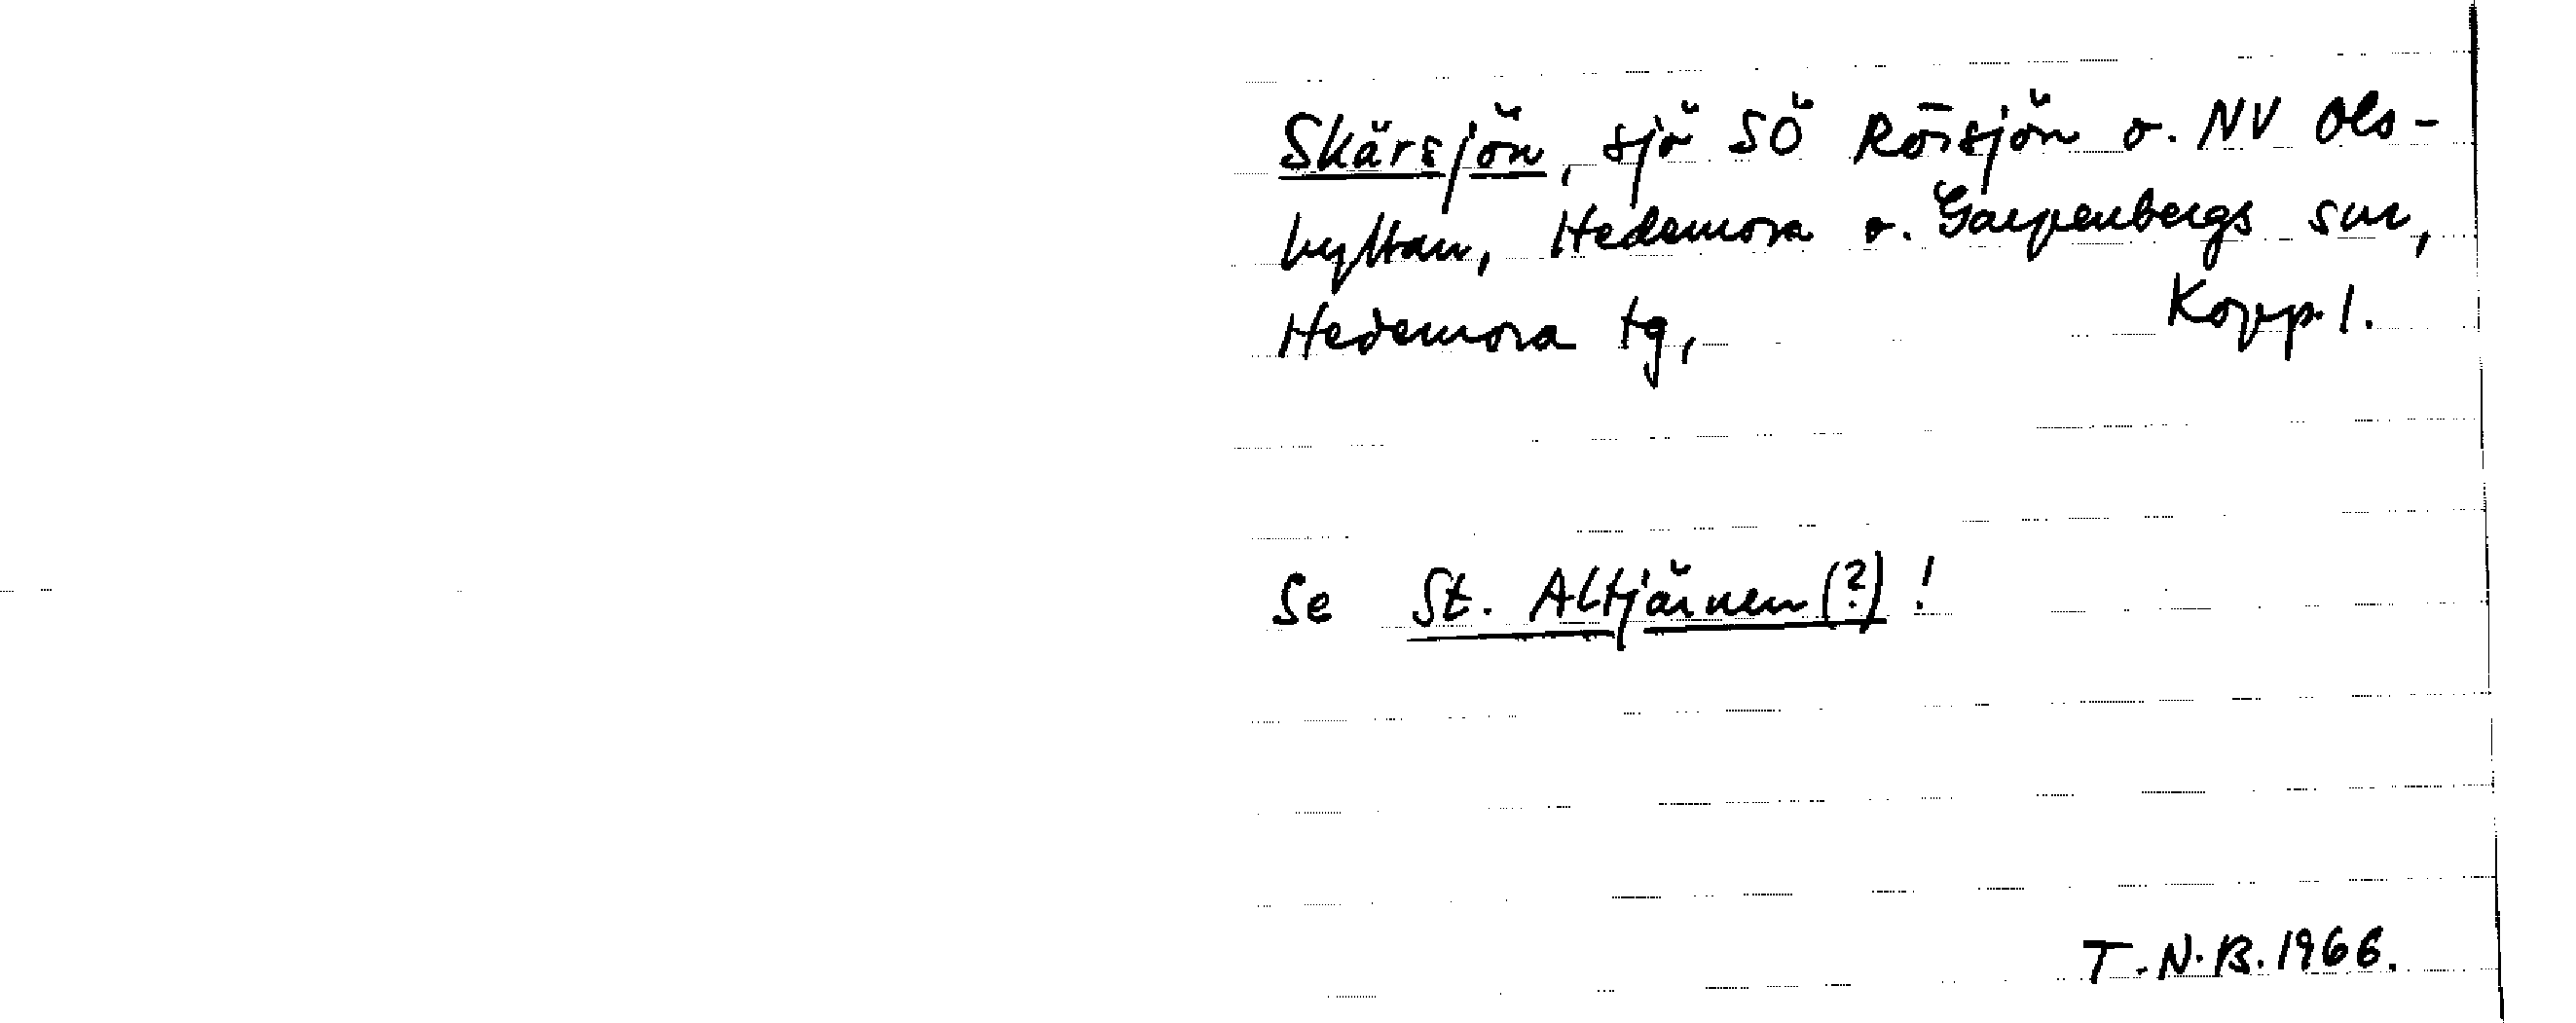 Skärsjön, sjö SÖ Rörsjön o. NV Ols-
hyttan, Hedemora o. Garpenbergs snr,
Hedemora tg, Kopp. l.
Se St. Altjärnen (?) !
T.N.B. 1966.